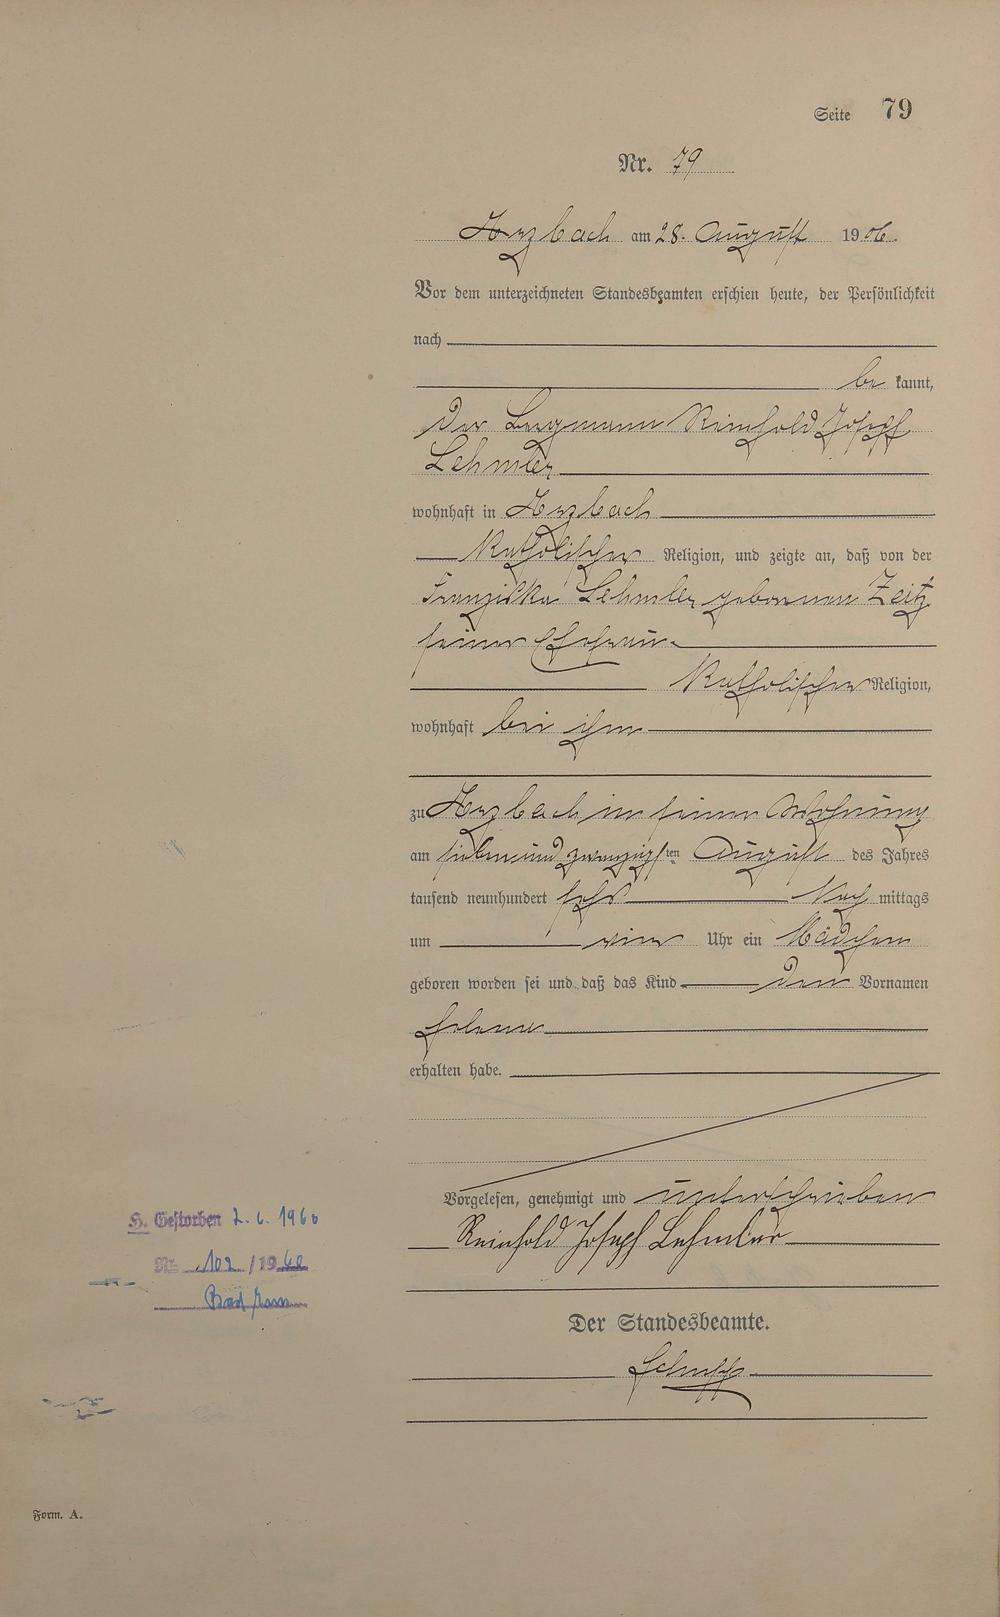 Seite 79
Nr. 79
Arzbach am 28. August 1906.
Vor dem unterzeichneten Standesbeamten erschien heute, der Persönlichkeit
nach
be kannt,
der Bergmann Reinhold Joseph
Lehmler
wohnhaft in Arzbach
Katholischer Religion, und zeigte an, daß von der
Franziska Lehmler geborenen Zeitz
seiner Ehefrau
Katholischer Religion,
wohnhaft bei ihm
zu Arzbach in seiner Wohnung
am sieben und zwanzigsten August des Jahres
tausend neunhundert sechs Nach mittags
um vier Uhr ein Mädchen
geboren worden sei und daß das Kind den Vornamen
Helene
erhalten habe.
Vorgelesen, genehmigt und unterschrieben
Reinhold Joseph Lehmler
Der Standesbeamte.
H. Gestorben 2. 6. 1960
Nr. 102 / 1960
Bad Ems
Form. A.